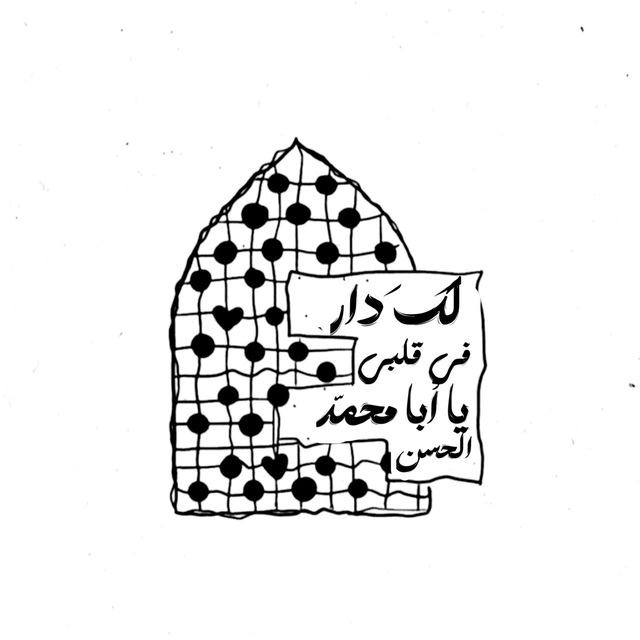 لَكَ دَار
في قلبي
يا أبا محمّد
الحسن